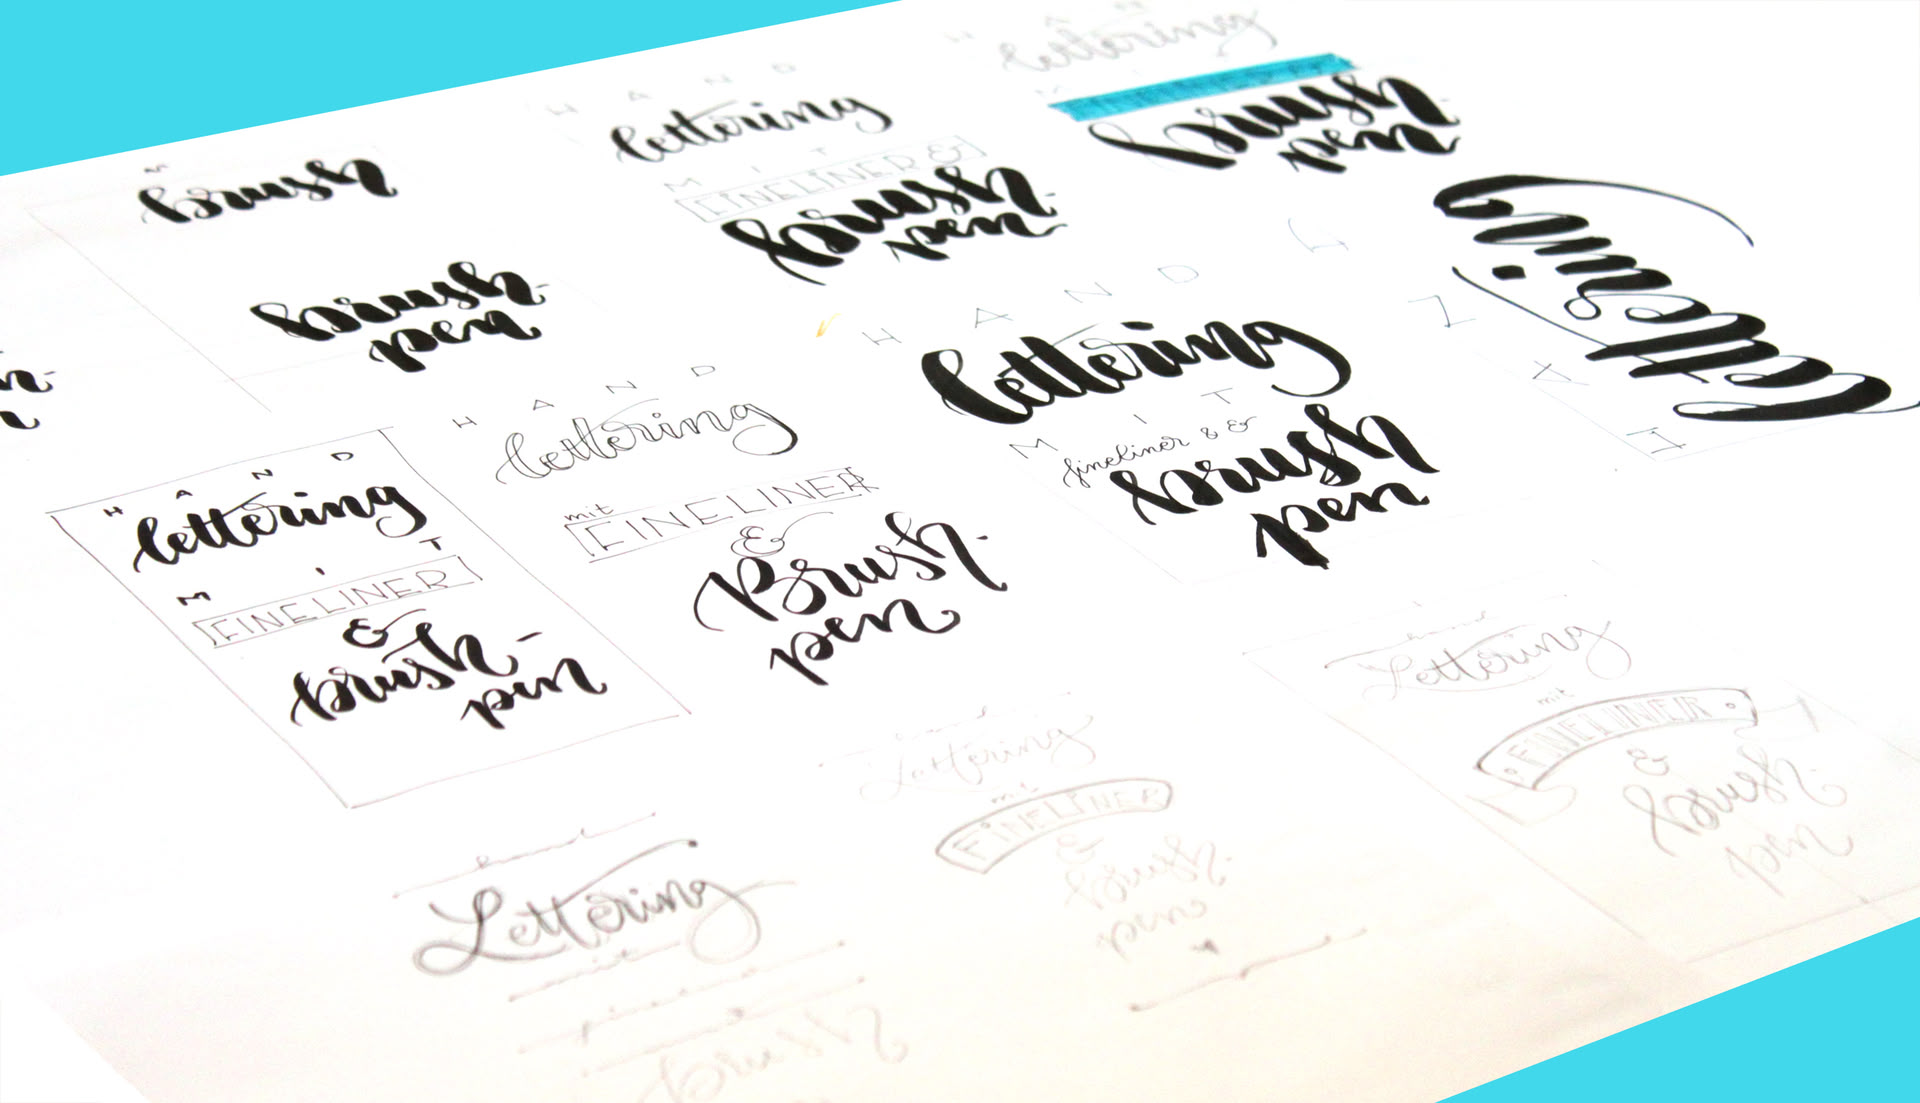 brush
brush-
pen
HAND
lettering
MIT
FINELINER &
brush-
pen
lettering
brush
pen
lettering
HAND
lettering
MIT
fineliner & &
brush
pen
HAND
lettering
MIT
FINELINER
&
brush-
pen
HAND
lettering
mit
FINELINER
&
Brush-
pen
hand
Lettering
mit
FINELINER
&
Brush-
pen
hand
Lettering
mit
FINELINER
&
Brush-
pen
hand
Lettering
mit